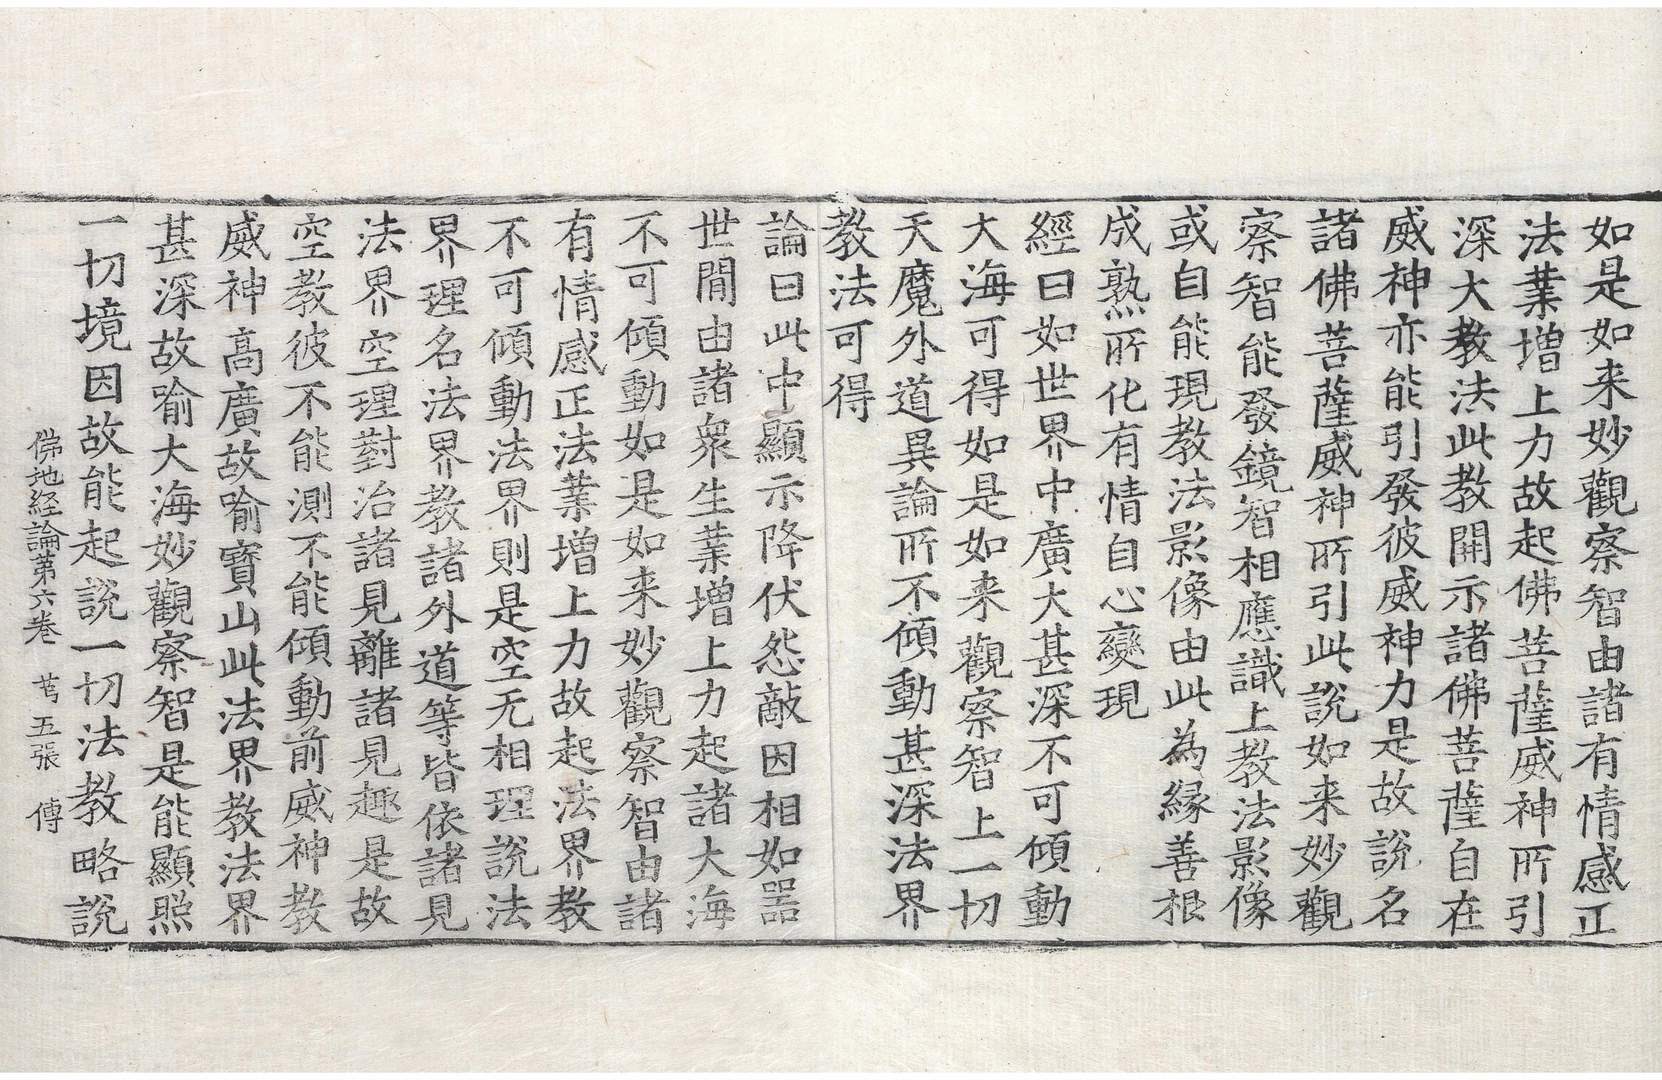 如是如来妙觀察智由諸有情感正
法業增上力故起佛菩薩威神所引
深大教法此教開示諸佛菩薩自在
威神亦能引發彼威神力是故說名
諸佛菩薩威神所引此說如来妙觀
察智能發鏡智相應識上教法影像
或自能現教法影像由此為緣善根
成熟所化有情自心變現
經曰如世界中廣大甚深不可傾動
大海可得如是如来觀察智上一切
天魔外道異論所不傾動甚深法界
教法可得
論曰此中顯示降伏怨敵因相如器
世間由諸衆生業增上力起諸大海
不可傾動如是如来妙觀察智由諸
有情感正法業增上力故起法界教
不可傾動法界則是空无相理說法
界理名法界教諸外道等皆依諸見
法界空理對治諸見離諸見趣是故
空教彼不能測不能傾動前威神教
威神高廣故喻寶山此法界教法界
甚深故喻大海妙觀察智是能顯照
一切境因故能起說一切法教略說
佛地経論第六卷 五張 傳